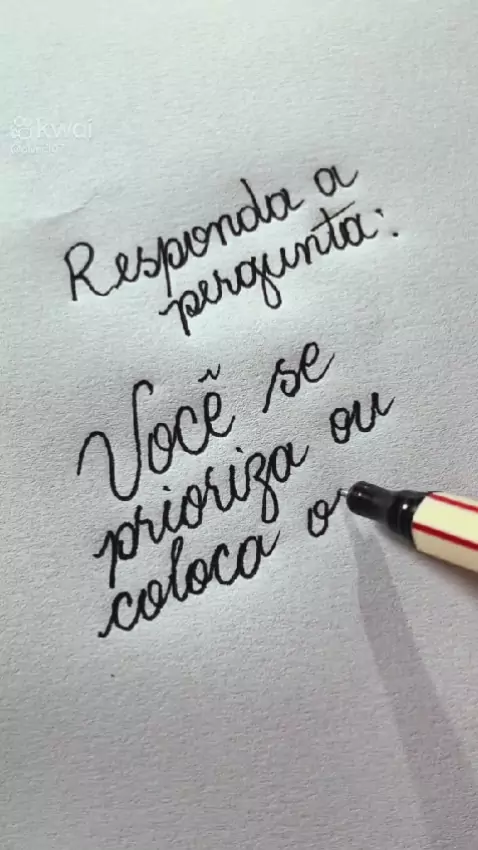 kwai
Responda a
pergunta:
Você se
prioriza ou
coloca o